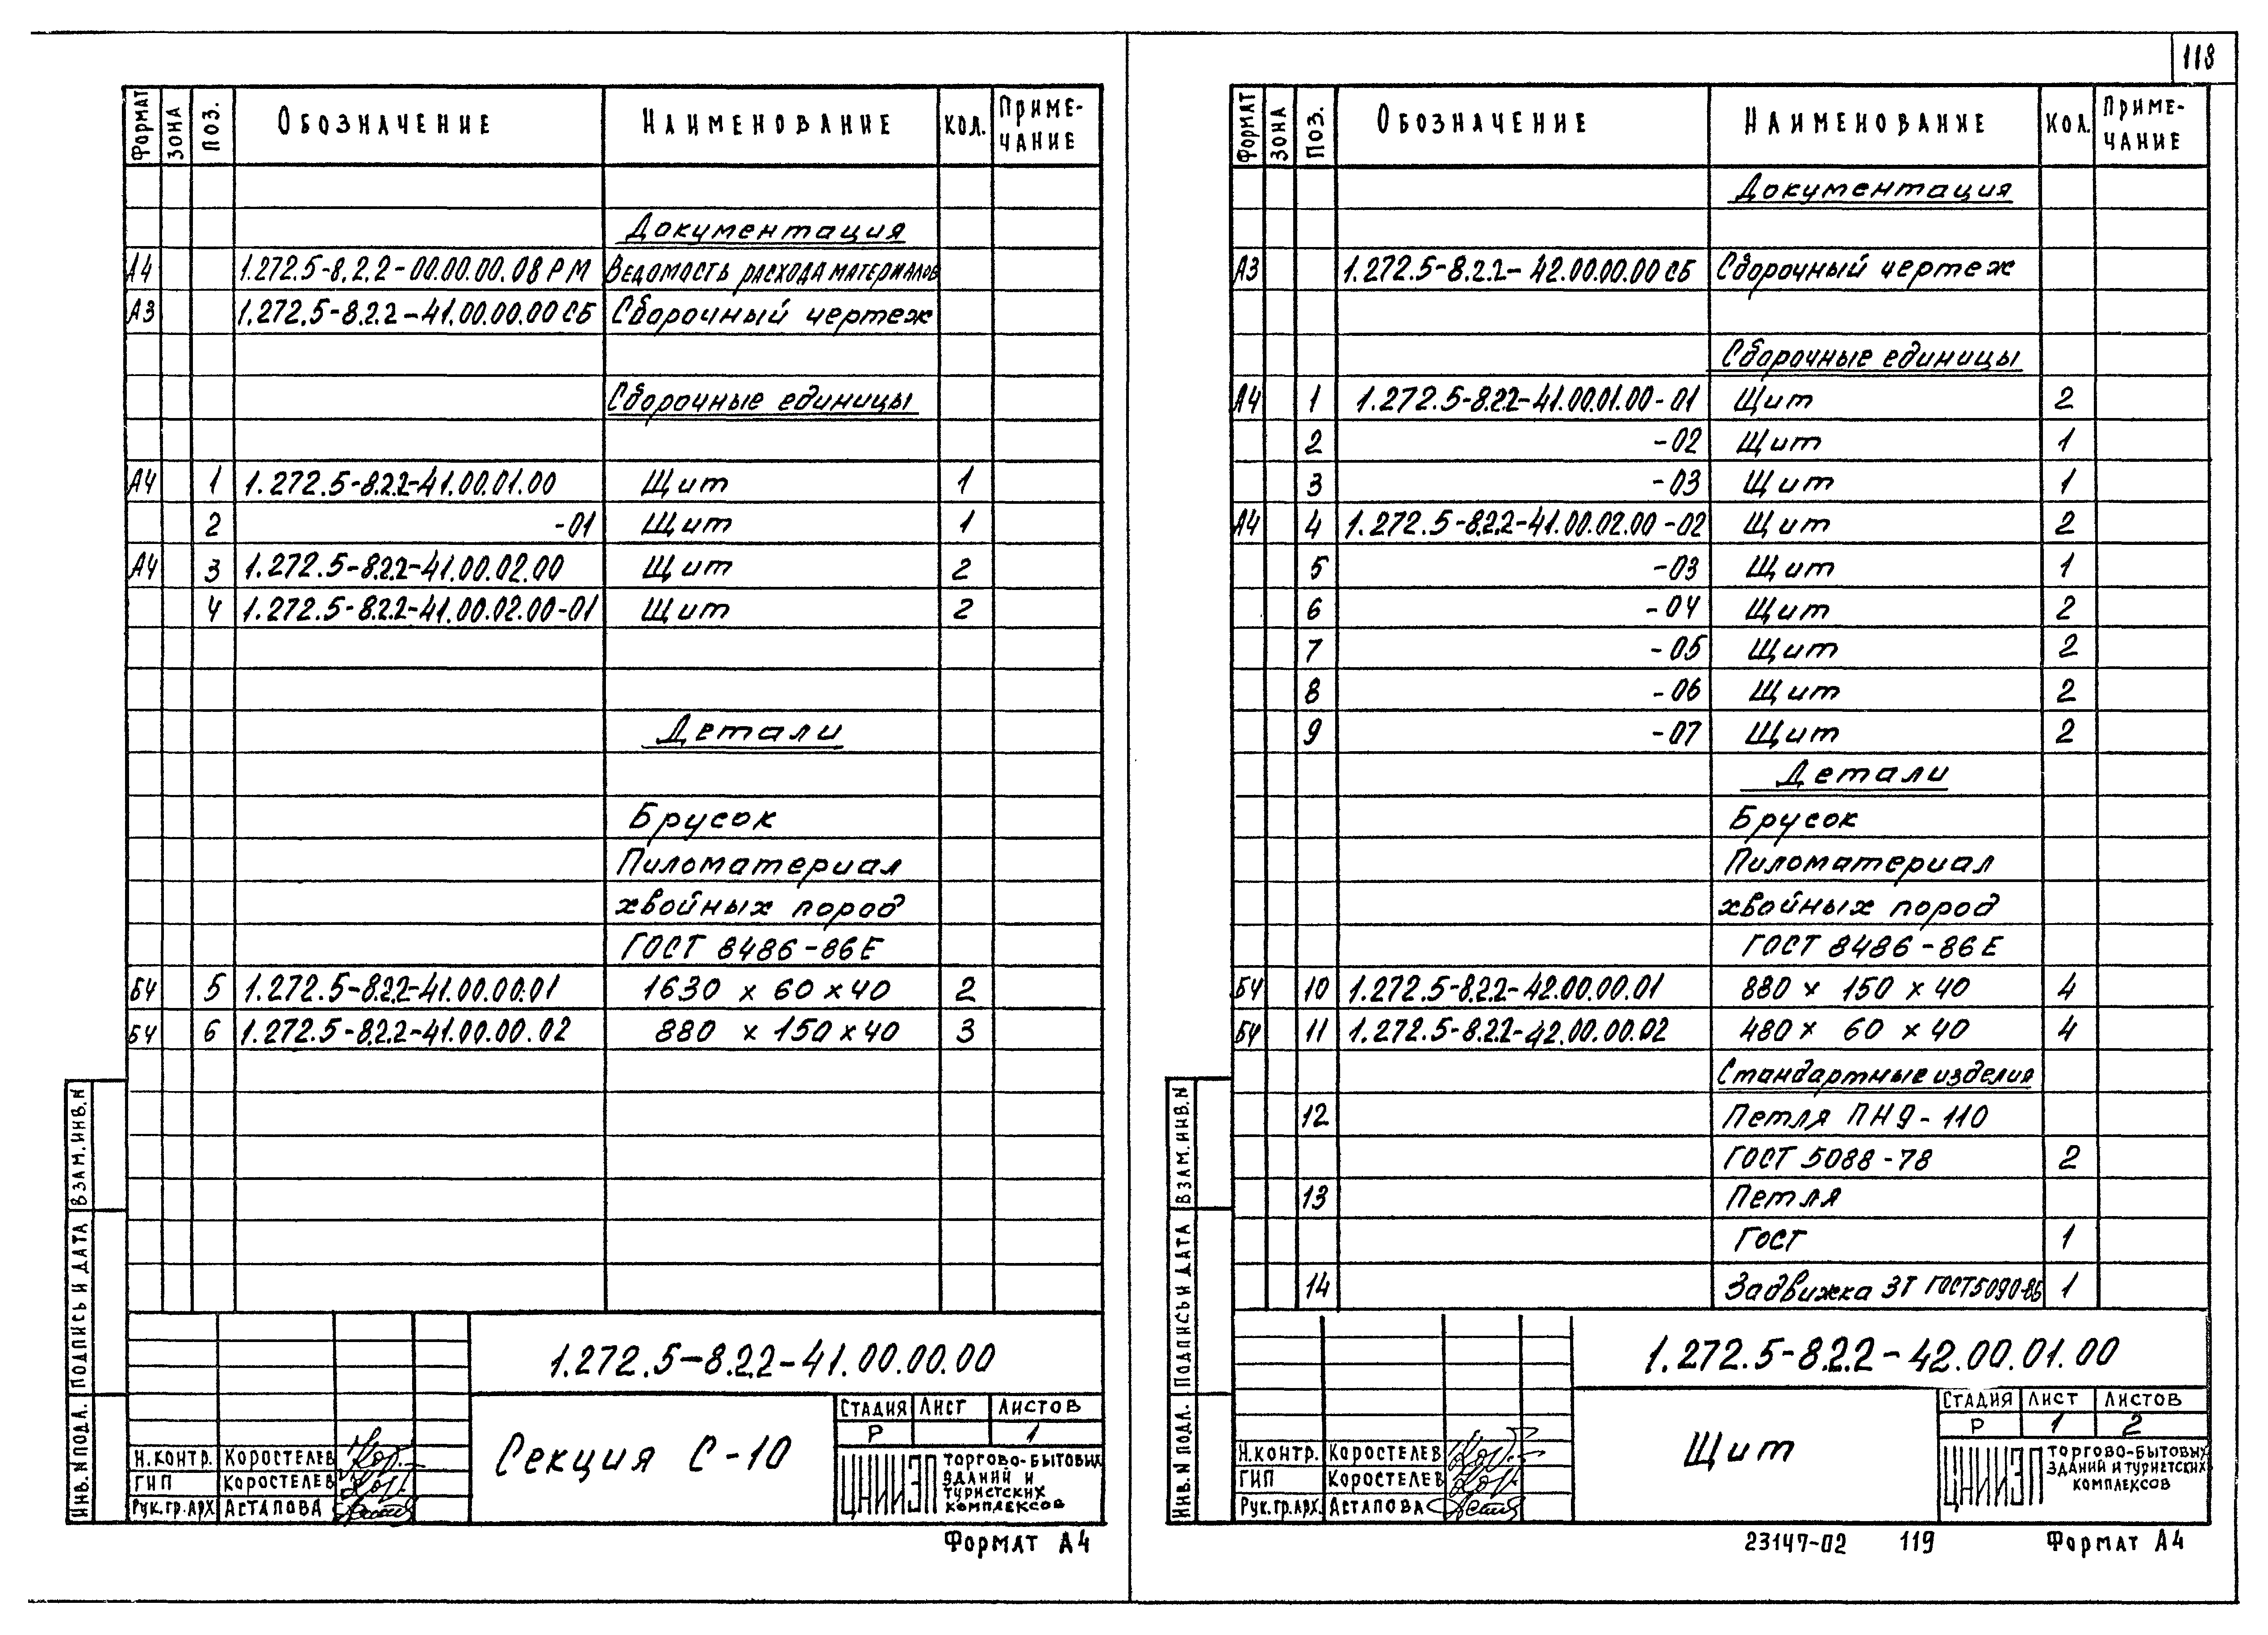 118
ФОРМАТ ЗОНА ПОЗ. ОБОЗНАЧЕНИЕ НАИМЕНОВАНИЕ КОЛ. ПРИМЕ-
ЧАНИЕ
Документация
А4 1.272.5-8.2.2-00.00.00.08РМ Ведомость расхода материалов
А3 1.272.5-8.2.2-41.00.00.00СБ Сборочный чертеж
Сборочные единицы
А4 1 1.272.5-8.2.2-41.00.01.00 Щит 1
2 -01 Щит 1
А4 3 1.272.5-8.2.2-41.00.02.00 Щит 2
4 1.272.5-8.2.2-41.00.02.00-01 Щит 2
Детали
Брусок
Пиломатериал
хвойных пород
ГОСТ 8486-86Е
БЧ 5 1.272.5-8.2.2-41.00.00.01 1630 х 60 х 40 2
БЧ 6 1.272.5-8.2.2-41.00.00.02 880 х 150 х 40 3
ВЗАМ.ИНВ.N
ПОДПИСЬ И ДАТА
ИНВ.N ПОДЛ.
1.272.5-8.2.2-41.00.00.00
Секция С-10
СТАДИЯ ЛИСТ ЛИСТОВ
Р 1
Н.КОНТР. КОРОСТЕЛЕВ
ГИП КОРОСТЕЛЕВ
РУК.ГР.АРХ АСТАПОВА
ЦНИИЭП ТОРГОВО-БЫТОВЫХ
ЗДАНИЙ И
ТУРИСТСКИХ
КОМПЛЕКСОВ
ФОРМАТ А4
ФОРМАТ ЗОНА ПОЗ. ОБОЗНАЧЕНИЕ НАИМЕНОВАНИЕ КОЛ. ПРИМЕ-
ЧАНИЕ
Документация
А3 1.272.5-8.2.2-42.00.00.00СБ Сборочный чертеж
Сборочные единицы
А4 1 1.272.5-8.2.2-41.00.01.00-01 Щит 2
2 -02 Щит 1
3 -03 Щит 1
А4 4 1.272.5-8.2.2-41.00.02.00-02 Щит 2
5 -03 Щит 1
6 -04 Щит 2
7 -05 Щит 2
8 -06 Щит 2
9 -07 Щит 2
Детали
Брусок
Пиломатериал
хвойных пород
ГОСТ 8486-86Е
БЧ 10 1.272.5-8.2.2-42.00.00.01 880 х 150 х 40 4
БЧ 11 1.272.5-8.2.2-42.00.00.02 480 х 60 х 40 4
Стандартные изделия
12 Петля ПН9-110
ГОСТ 5088-78 2
13 Петля
Гост 1
14 Задвижка ЗТ ГОСТ5090-86 1
ВЗАМ.ИНВ.N
ПОДПИСЬ И ДАТА
ИНВ.N ПОДЛ.
1.272.5-8.2.2-42.00.01.00
Щит
СТАДИЯ ЛИСТ ЛИСТОВ
Р 1 2
Н.КОНТР. КОРОСТЕЛЕВ
ГИП КОРОСТЕЛЕВ
РУК.ГР.АРХ. АСТАПОВА
ЦНИИЭП ТОРГОВО-БЫТОВЫХ
ЗДАНИЙ И ТУРИСТСКИХ
КОМПЛЕКСОВ
23147-02 119 ФОРМАТ А4